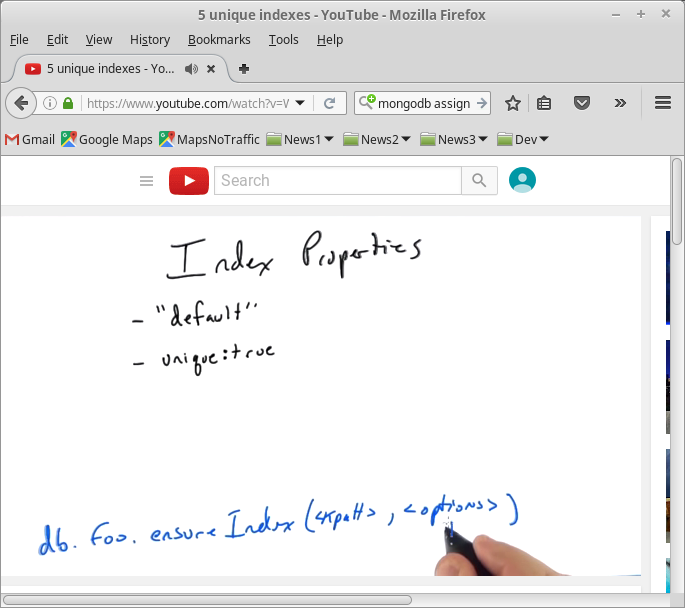 5 unique indexes - YouTube - Mozilla Firefox
File Edit View History Bookmarks Tools Help
5 unique indexes - Yo...
https://www.youtube.com/watch?v=V mongodb assign
Gmail Google Maps MapsNoTraffic News1 News2 News3 Dev
Search
Index Properties
- "default"
- unique:true
db.foo.ensureIndex( , <options>)